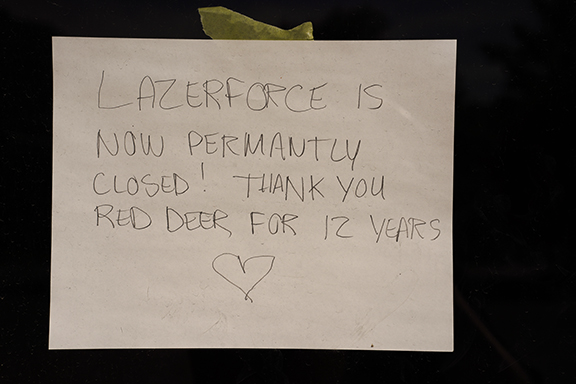 LAZERFORCE IS
NOW PERMANTLY
CLOSED! THANK YOU
RED DEER FOR 12 YEARS